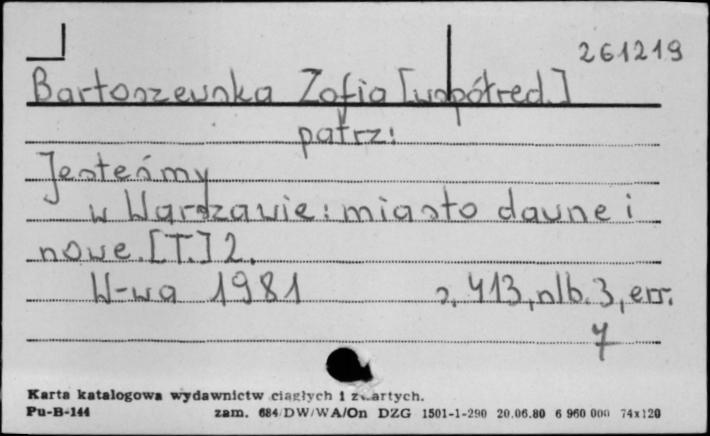 261219
Bartoszewska Zofia [współred.]
patrz:
Jesteśmy
w Warszawie: miasto dawne i
nowe. [T.] 2.
W-wa 1981 s. 413, nlb. 3, err.
7
Karta katalogowa wydawnictw ciągłych i zwartych.
Pu-B-144 zam. 684/DW/WA/On DZG 1501-1-290 20.06.80 6 960 000 74x120